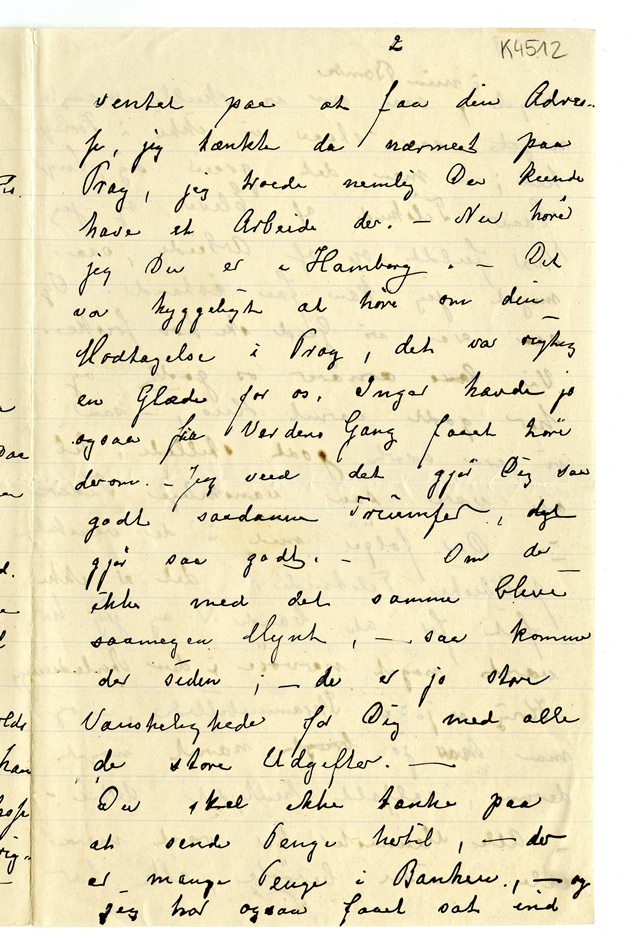 2
K4512
ventet paa at faa din Adres-
se, jeg tænkte da nærmest paa
Prag, jeg troede nemlig Du kunde
have et Arbeide der. – Nu hører
jeg Du er i Hamborg. – Det
var hyggeligt at høre om din
Modtagelse i Prag, det var rigtig
en Glæde for os, Inger havde jo
ogsaa fra Verdens Gang faaet høre
derom. – Jeg veed det gjør Dig saa
godt saadanne Triumfer, det
gjør saa godt. – Om der
ikke med det samme blive
saamegen Mynt, – saa kommer
der siden; – der er jo store
Vanskeligheder for Dig med alle
de store Udgifter. –
Du skal ikke tænke paa
at sende Penge hertil, – der
er mange Penge i Banken, – og
jeg har ogsaa faaet sat ind